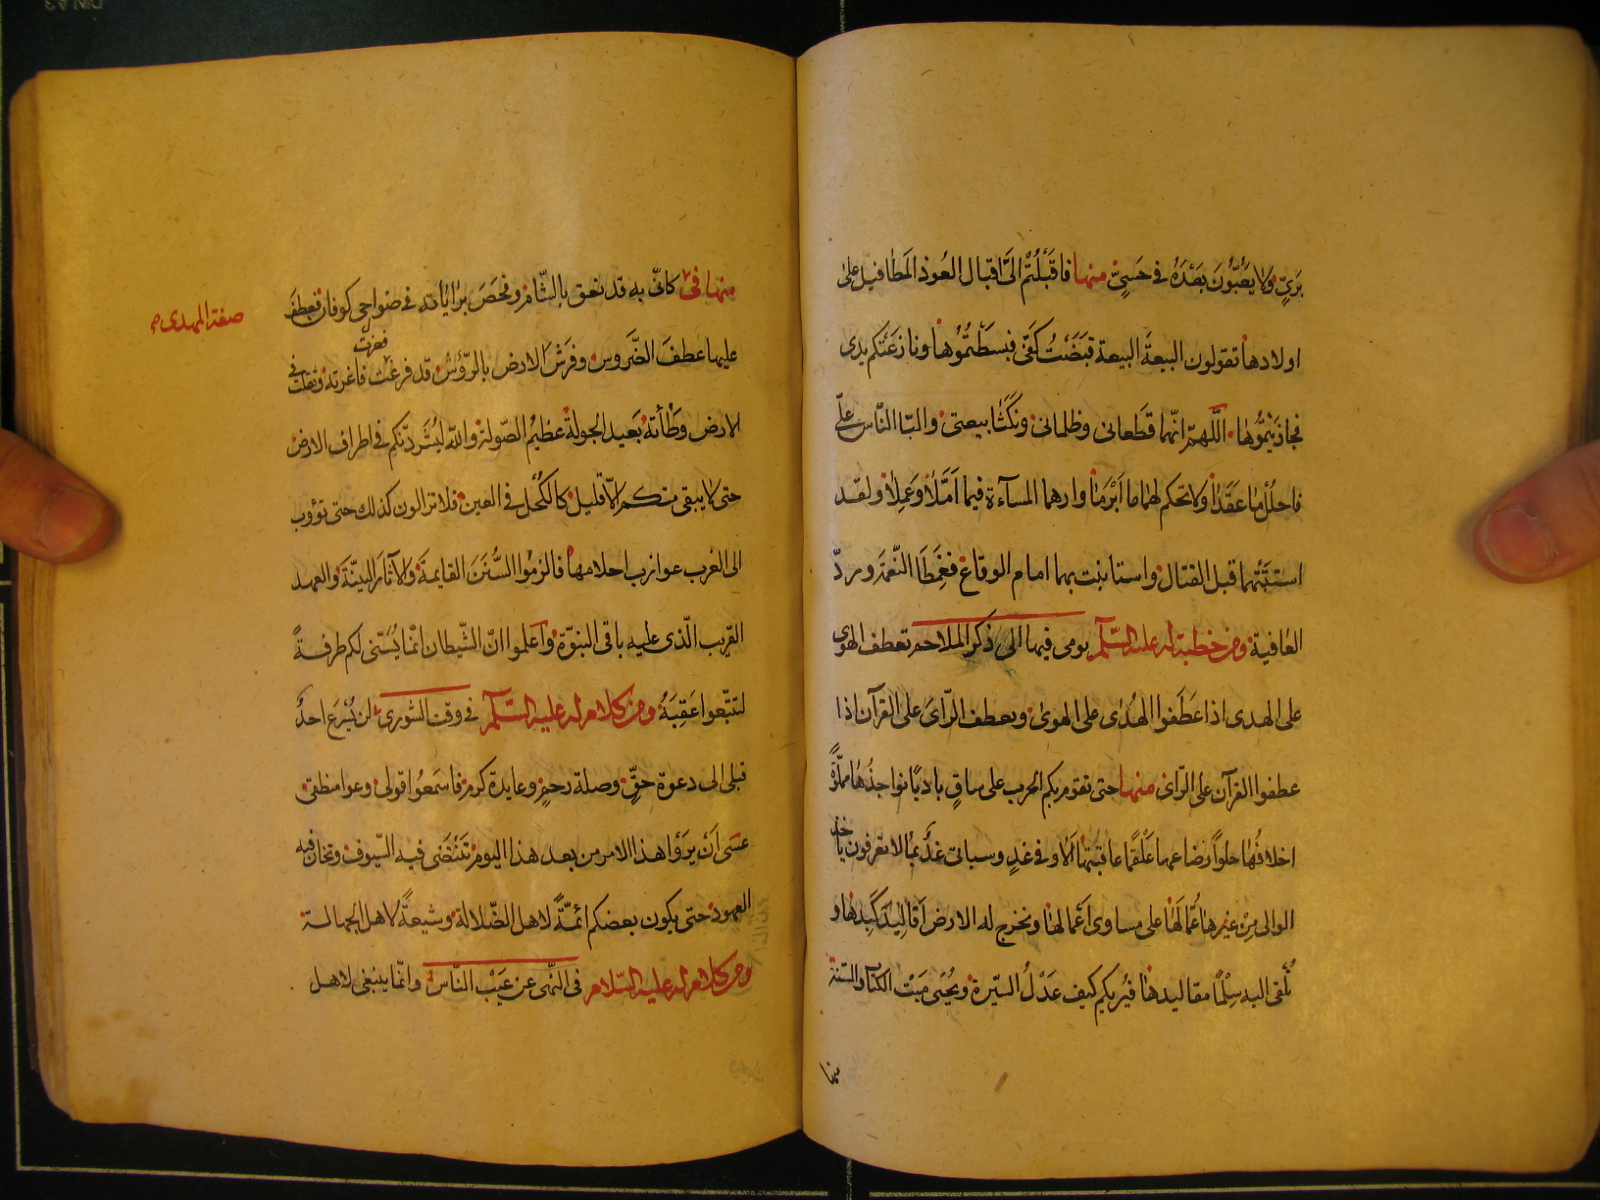 بَرِيٍّ وَلا يَعُبُّونَ بَعْدَهُ في حَسيٍ منها فاقْبَلْتُمْ الىَّ اقبال العُوذ المَطافيل على
اولادها تقولون البيعةَ البيعة قبَضَتُ كَفّى فبسَطْتُمُوها ونازَعَتْكم يدى
فجاذَبْتُمُوها اللَّهمّ انّهما قَطَعانى وظلمانى ونكَثا بيعتى والبّا النّاس علىّ
فاحلُلْ ما عَقَدا ولا تحكم لهما ما ابْرَما وارهما المساءة فيما اَمَّلا وَعَمِلا ولقد
استثَبْتُهما قبل القتال واستانيت بهما امام الوقاع فغَمِطَا النّعمة وردّ
العافية ومن خطبة له عليه السّلم يومى فيها الى ذكر الملاحم تعطف الهوى
على الهدى اذا عَطَفُوا الهُدى على الهوى ويعطف الرّاىَ على القرآن اذا
عطفوا القرآن على الرّاى منها حتى تقوم بكم الحرب على ساقٍ بادِيًا نواجذُها مملّوةً
اخلافُها حلواً رضاعها عَلْقَمًا عاقبتها اَلا وفى غدٍ وسياتى غدٌ بما لا تعرفون ياخذ
الوالى مِنْ غيرها عُمّالَها على مساوى اَعْمالها وتخرج له الارض اَفاليذ كَبِدها و
تُلْقى اليه سِلْمًا مقاليدها فيُريكم كيف عَدْلُ السّيرة ويُحْيى مَيّت الكتاب والسّنة
منها
منها فى كانّى به قد نعق بالشّام وفحَصَ براياته فى ضواحى كوفان فعطف
صفة المهدى ع
عليها عَطفَ الضَّروس وفرَشَ الارض بالرّؤس قد فرغت فاغرته وثقلت فى
فغرت
الارض وَطْأته بَعيد الجولة عظيم الصّولة والله ليُشَرِدّنكم فى اطراف الارض
حتى لا يبقى منكم الاّ قليل كالكُحْل فى العين فلا تزالون كذلك حتى تؤوب
الى العرب عوازب احلامها فالزمُوا السُّنَنَ القايمة والآثارَ البيّنةَ والعهد
القريب الّذى عليه باقى النبوّة وَاعلموا انّ الشّيطان انّما يُسَنّى لكم طرقه
لتتّبعوا عَقِبَهُ ومن كلام له عليه السّلم فى وقت الشورى لن يُسْرِعَ احدٌ
قبلى الى دعوة حقٍّ وصلة رحمٍ وعايدة كرم فاسمَعُوا قولى وعوا منطقى
عسَى اَنْ يَرَوْا هذا الامر من بعد هذا اليوم تنْتَضى فيه السّيوف وتخان فيه
العهود حتى يكون بعضكم ائمّةً لاهل الضّلالة وشيعةً لاهل الجهالة
ومن كلام له عليه السّلام فى النّهى عن عَيْب النّاس وانّما ينبغى لاهل